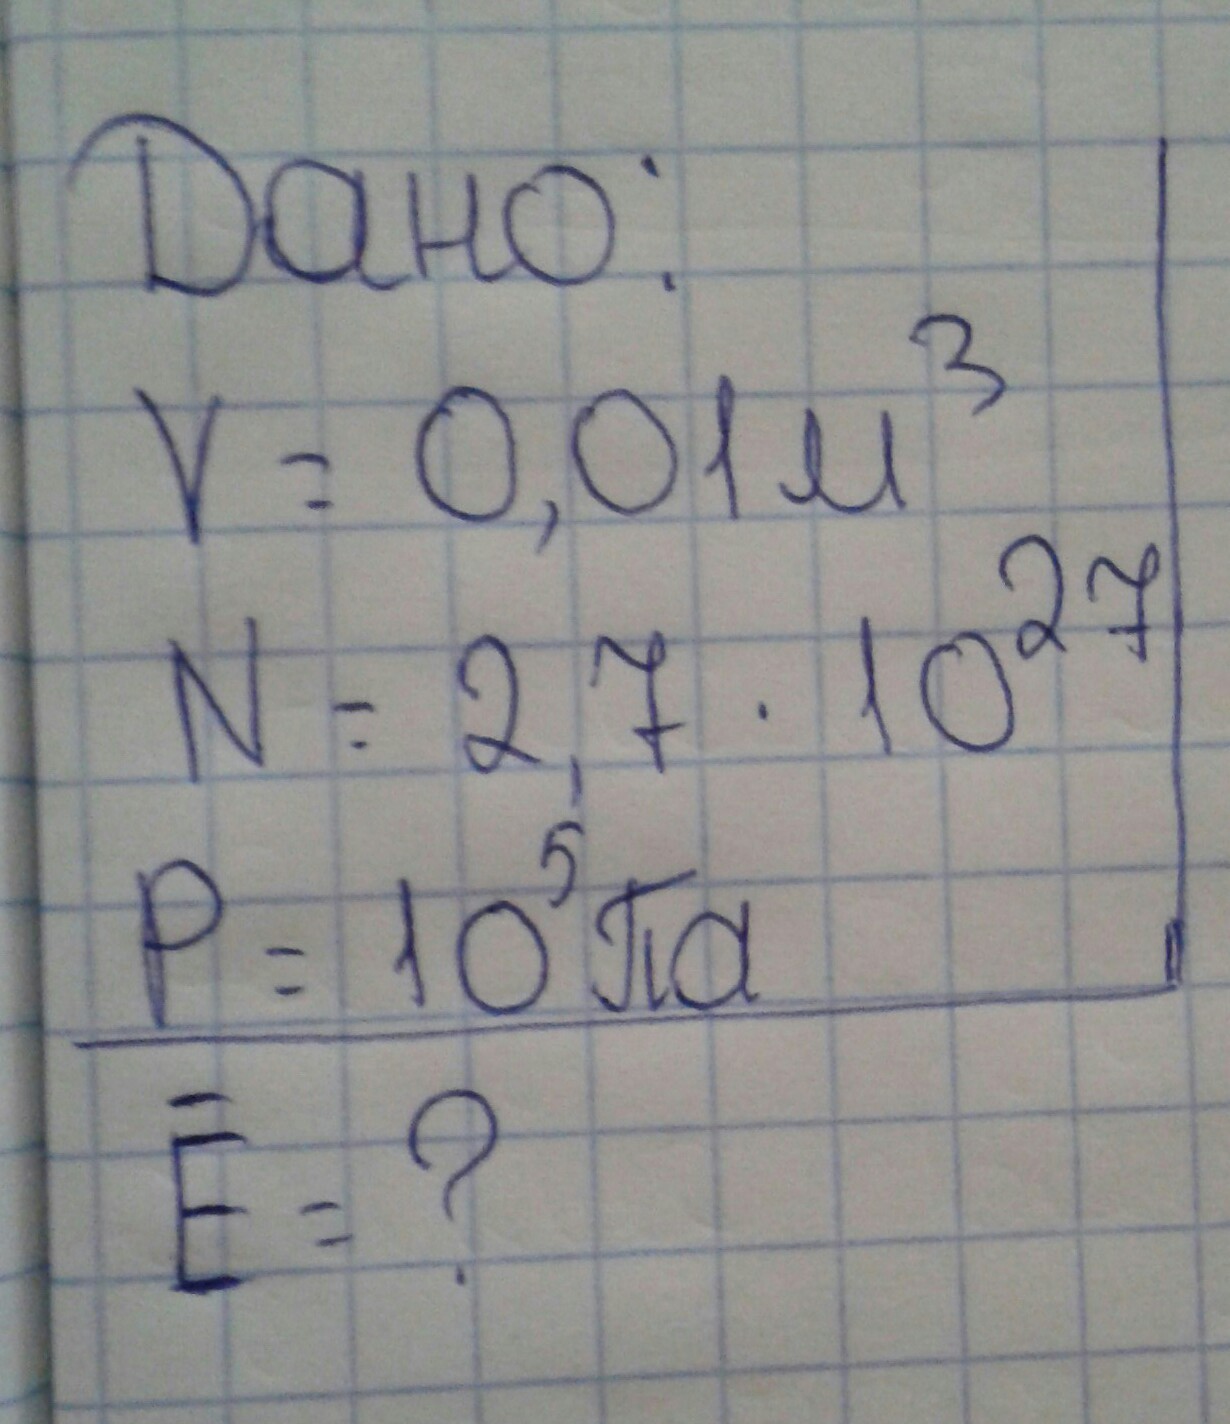 Дано:
V = 0,01 м³
N = 2,7 · 10²⁷
P = 10⁵ Па
Ē = ?